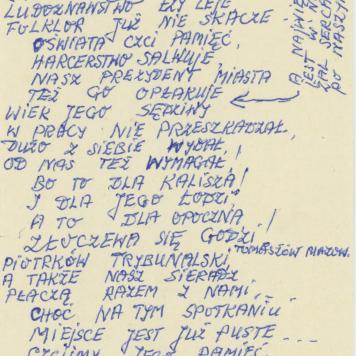 LUDOZNAWSTWO ŁZY LEJE
FOLKLOR JUŻ NIE SKACZE -
OŚWIATA CZCI PAMIĘĆ,
HARCERSTWO SALWUJE,
NASZ PREZYDENT MIASTA
TEŻ GO OPŁAKUJE
WIEK JEGO SĘDZIWY
W PRACY NIE PRZESZKADZAŁ,
DUŻO Z SIEBIE WYDAŁ,
OD NAS TEŻ WYMAGAŁ!
BO TO DLA KALISZA!
I DLA JEGO ŁODZI,
A TO DLA OPOCZNA!
ZŁOCZEWA SIĘ GODZI,
TOMASZÓW MAZOW.
PIOTRKÓW TRYBUNALSKI,
A TAKŻE NASZ SIERADZ.
PŁACZĄ RAZEM Z NAMI...
CHOĆ NA TYM SPOTKANIU
MIEJSCE JEST JUŻ PUSTE ---
CZCIMY JEGO PAMIĘĆ
A NAJWIĘ
JEST W N
ŻAL SERCA
PO NASZYM